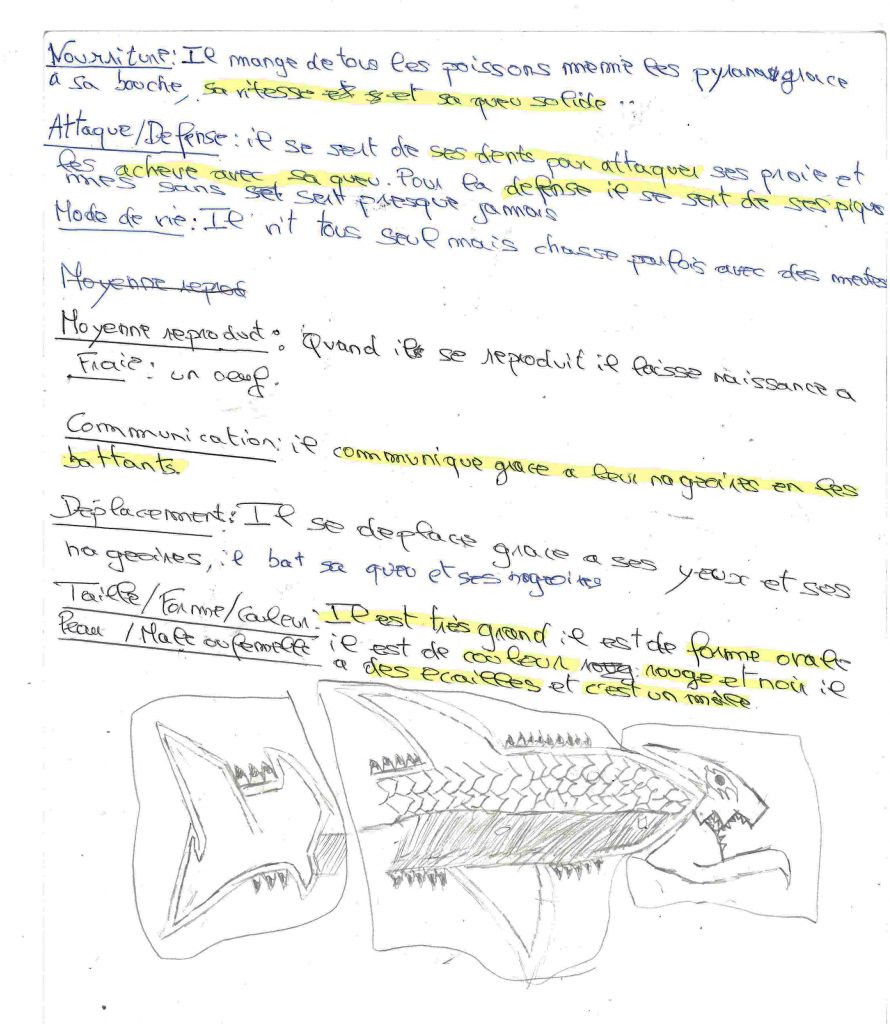 Nourriture: Il mange de tous les poissons meme les pyrana grace
a sa bouche, sa vitesse et et sa queu solide ..
Attaque/Defense: il se sert de ses dents pour attaquer ses proie et
les acheve avec sa queu. Pour la defense il se sert de ses pique
mes sans sert presque jamais
Mode de vie: Il vit tous seul mais chasse parfois avec des meutes
Moyenne reprod
Moyenne reproduct: Quand il se reproduit il laisse naissance a
Fraie: un oeuf.
Communication: il communique grace a leur nageoires en les
battants.
Déplacement: Il se deplace grace a ses yeux et ses
nageoires, il bat sa queu et ses nageoires
Taille/Forme/Couleur: Il est très grand il est de forme oval
Peau / Male ou femelle il est de couleur rouge et noir il
a des ecailles et c'est un mâle